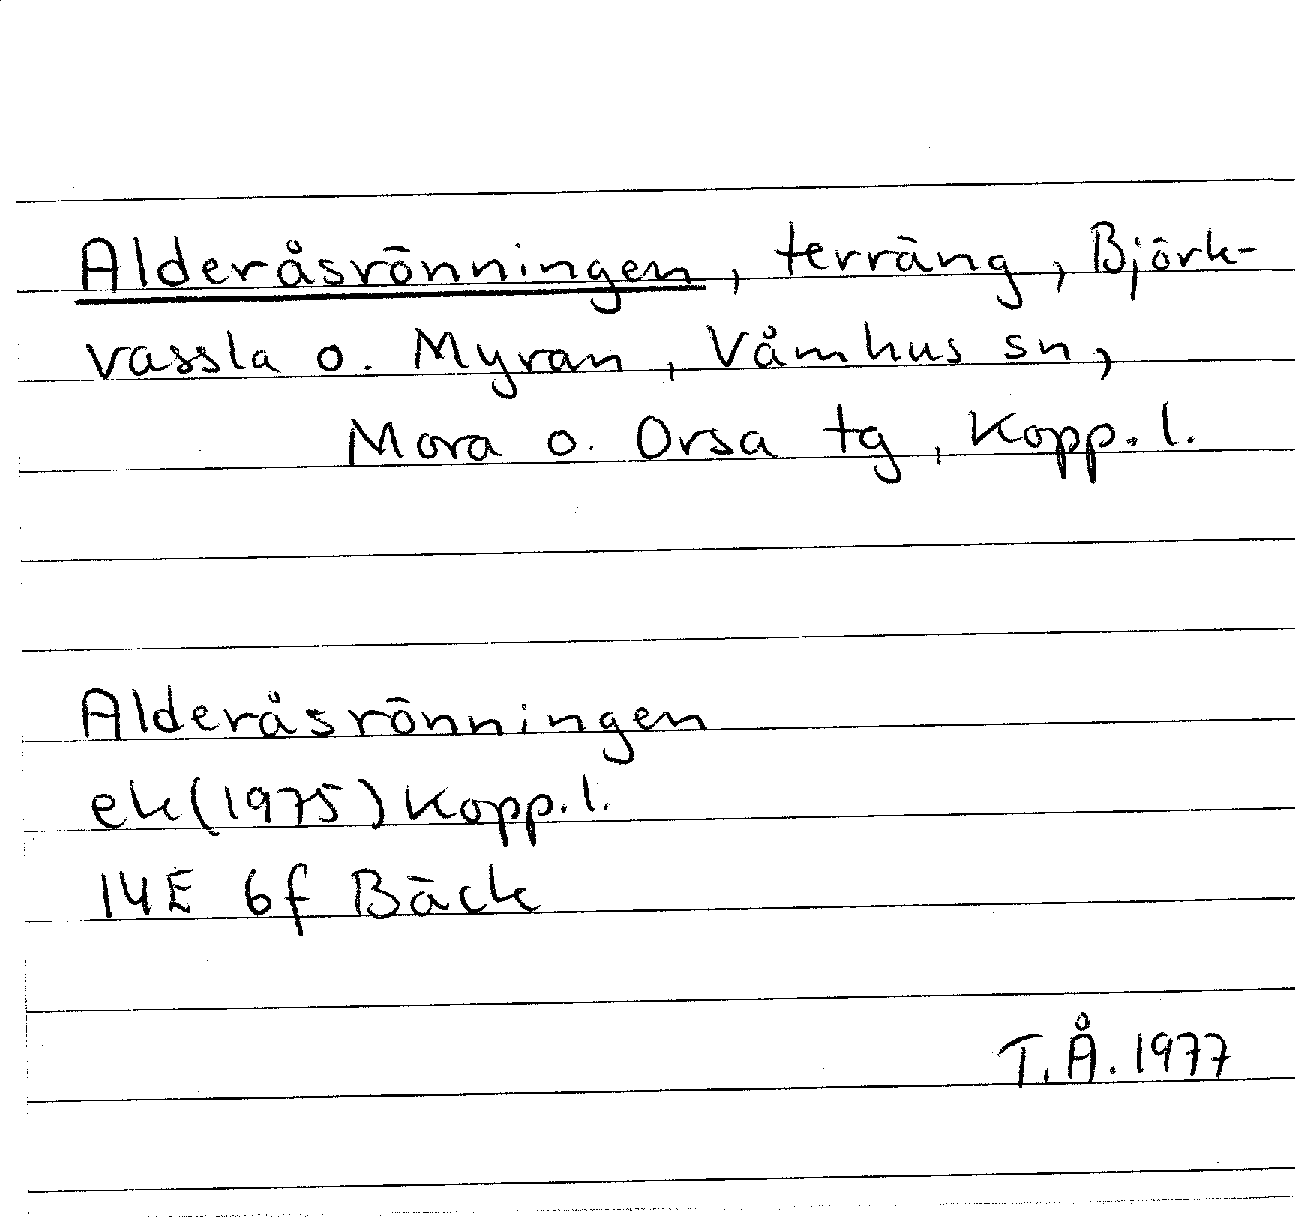 Alderåsrönningen, terräng, Björk-
vassla o. Myran, Våmhus sn,
Mora o. Orsa tg, Kopp. l.
Alderåsrönningen
ek (1975) Kopp. l.
14E 6f Bäck
T.Å. 1977